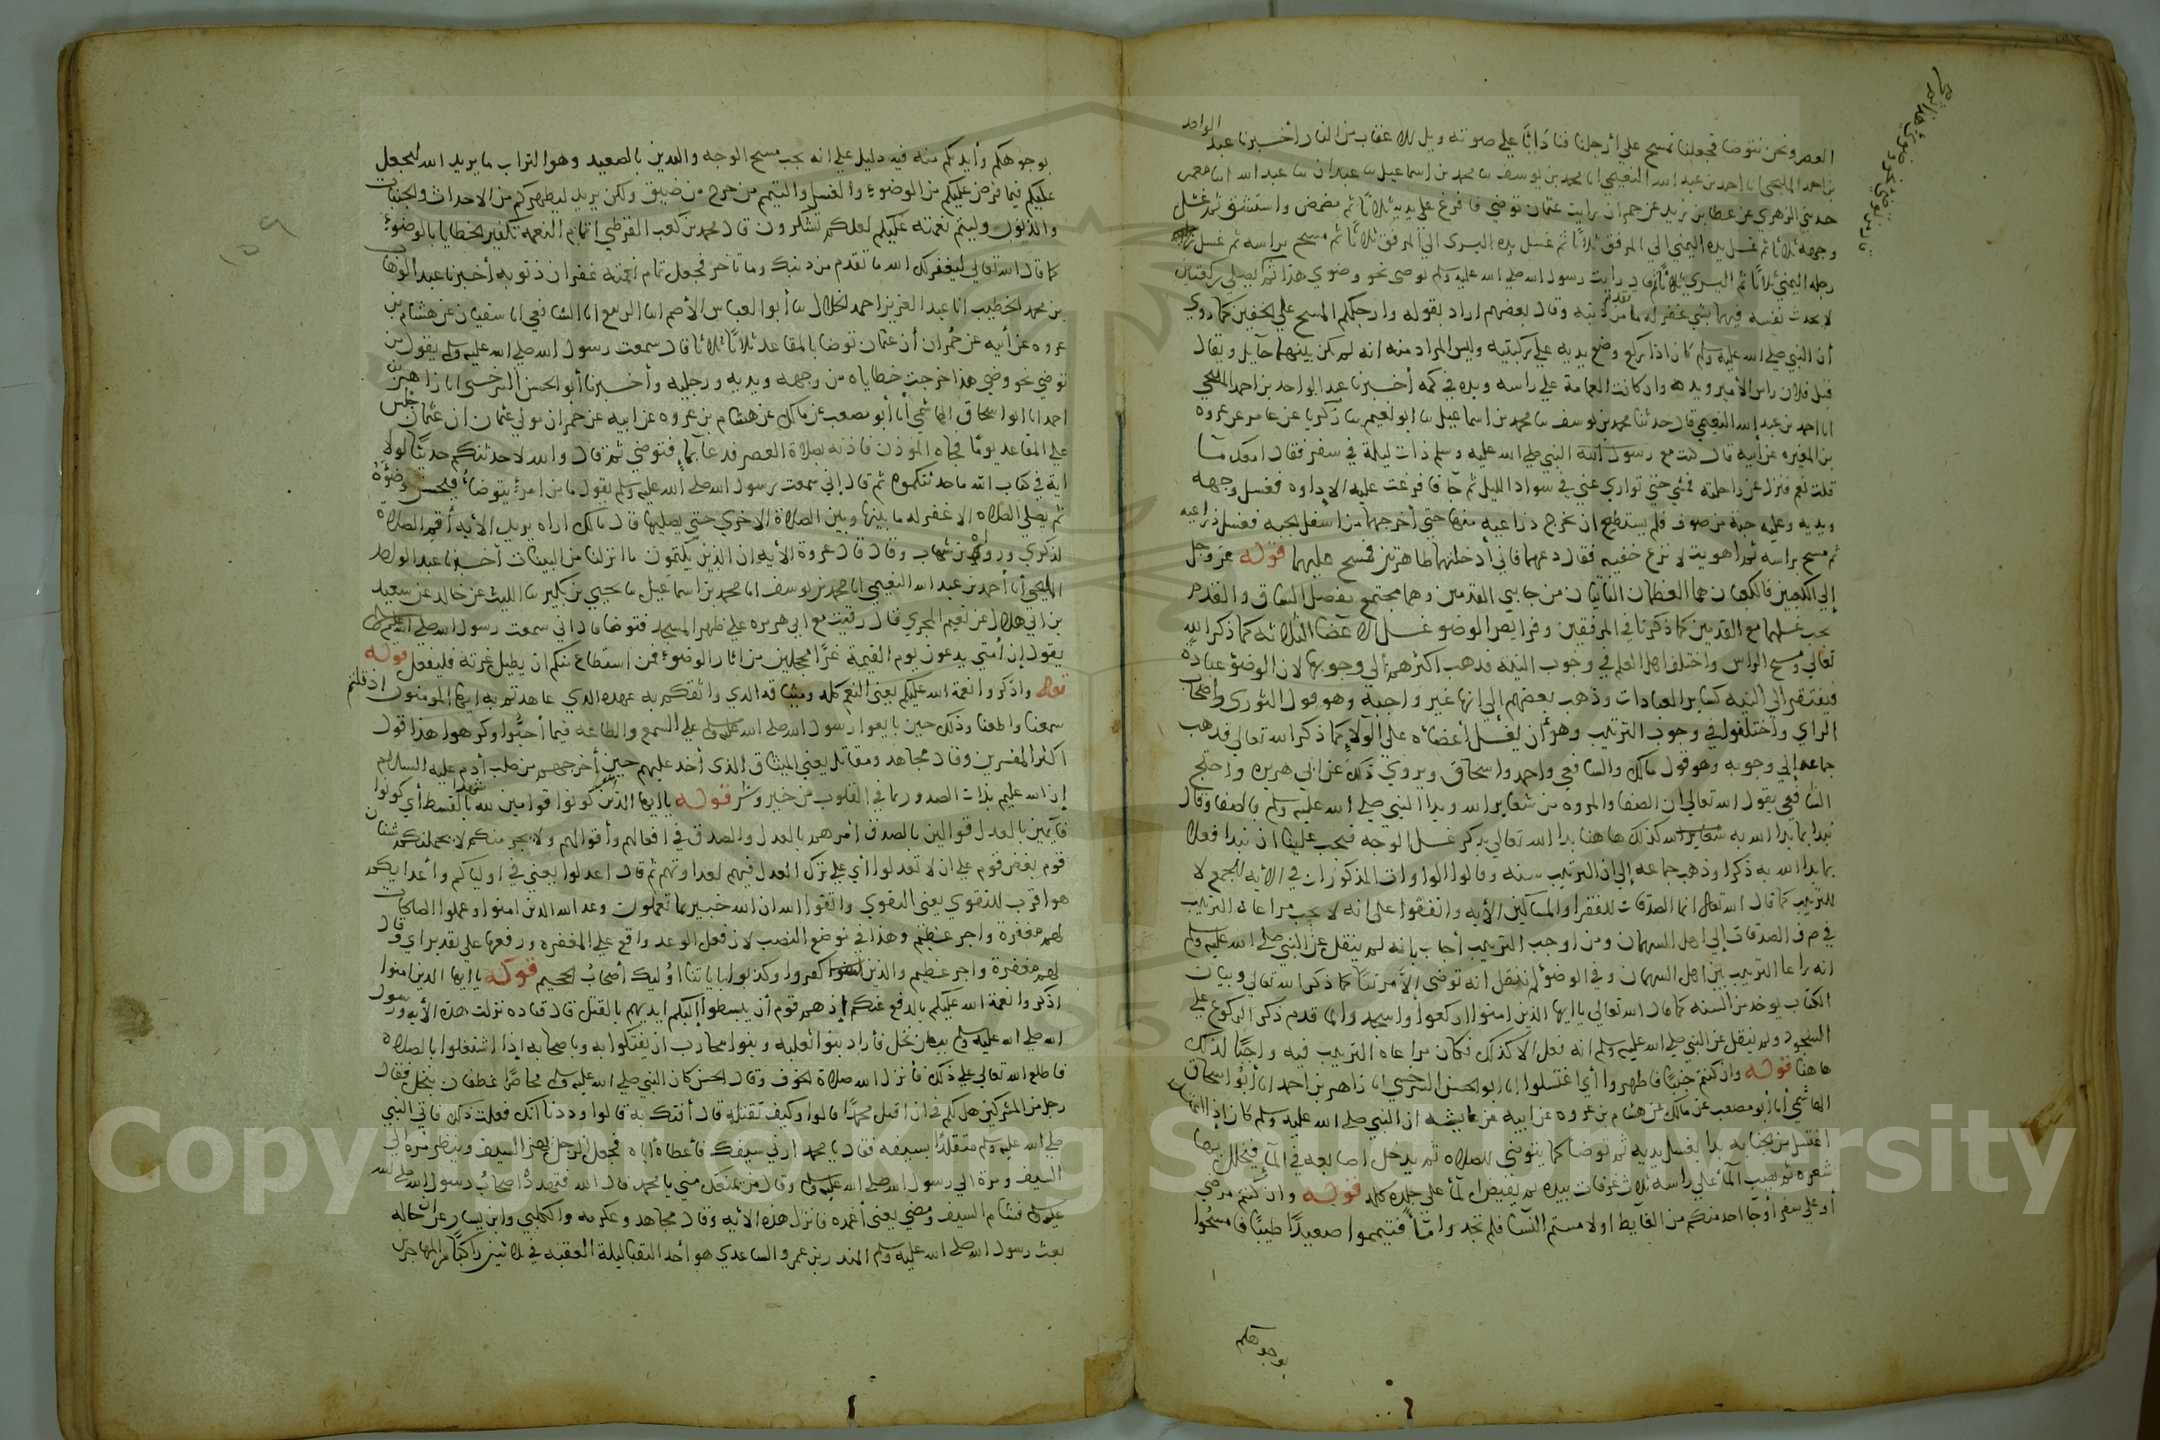 العصر ونحن نتوضا فجعلنا نمسح على أرجلنا فنادانا على صوته ويل للاعقاب من النار أخبرنا عبد الواحد
بن احمد المليحي انا احمد بن عبد الله النعيمي انا محمد بن يوسف نا محمد بن اسماعيل نا عبدان نا عبد الله انا معمر
حدثني الزهري عن عطا بن يزيد عن حمران رايت عثمان توضي فافرغ على يديه ثلاثا ثم مضمض واستنشق ثم غسل
وجهه ثلاثا ثم غسل يده اليمني الي المرفق ثلاثا ثم غسل يده اليسرى الي المرفق ثلاثا ثم مسح براسه ثم غسل
رجله اليمني ثلاثا ثم اليسري ثلاثا ثم قال رايت رسول الله صلى الله عليه وسلم توضى نحو وضوي هذا ثم يصلي ركعتين
لا يحدث نفسه فيهما بشي غفر له ما تقدم من ذنبه وقال بعضهم اراد بقوله وارجلكم المسح على الخفين كما روي
أن النبي صلى الله عليه وسلم كان اذا ركع وضع يديه على ركبتيه وليس المراد منه انه لم يكن بينهما حايل ويقال
قبل فلان راس الأمير ويده وان كانت العمامة على راسه ويده في كمه أخبرنا عبد الواحد بن احمد المليحي
انا احمد بن عبد الله النعيمي قال حدثنا محمد بن يوسف نا محمد بن اسماعيل نا ابو نعيم نا زكريا عن عامر عن عروه
بن المغيره عن أبيه قال كنت مع رسول الله النبي صلى الله عليه وسلم ذات ليلة في سفر فقال امعك مآ
قلت نعم فنزل عن راحلته فمشي حتي تواري عني في سواد الليل ثم جآ فافرغت عليه الإداوه فغسل وجهه
ويديه وعليه جبة من صوف فلم يستطع ان يخرج ذراعيه منها حتي أخرجهما من اسفل الجبه فغسل ذراعيه
ثم مسح براسه ثم اهويت لانزع خفيه فقال دعهما فاني أدخلتهما طاهرتين فمسح عليهما قوله عز وجل
إلى الكعبين فالكعبان هما العظمان الناتيان من جانبي القدمين وهما مجتمع مفصل الساق والقدم
يجب غسلهما مع القدمين كما ذكرنا في المرفقين وفرايض الوضو غسل الاعضا الثلاثه كما ذكر الله
تعالى ومسح الراس واختلف اهل العلم في وجوب النيه فذهب اكثرهم الي وجوبها لان الوضؤ عباده
فيفتقر الى النيه كساير العبادات وذهب بعضهم إلى انها غير واجبة وهو قول الثوري واصحاب
الراي واختلفوا في وجوب الترتيب وهو أن يغسل أعضائه على الولا كما ذكر الله تعالى فذهب
جماعه إلى وجوبه وهو قول مالك والشافعي واحمد واسحاق ويروي ذلك عن ابي هريره واحتج
الشافعي بقول الله تعالي ان الصفا والمروه من شعاير الله وبدا النبي صلى الله عليه وسلم بالصفا وقال
نبدا بما بدا الله به شعاير الله كذلك هاهنا بدا الله تعالى بذكر غسل الوجه فيجب علينا ان نبدا فعلا
بما بدا الله به ذكرا وذهب جماعه إلى ان الترتيب سنه وقالوا الواوات المذكورات في الآيه للجمع لا
للترتيب كما قال الله تعالى انما الصدقات للفقرا والمساكين الأيه واتفقوا على انه لا يجب مراعاة الترتيب
في صرف الصدقات إلى اهل السهمان ومن اوجب الترتيب أجاب بانه لم ينقل عن النبي صلى الله عليه وسلم
انه راعا الترتيب بين اهل السهمان وفي الوضوء لم ينقل انه توضى الا مرتبا كما ذكر الله تعالى وبيان
الكتاب يوخذ من السنه كما قال الله تعالى يا ايها الذين امنوا اركعوا واسجدوا لما قدم ذكر الركوع على
السجود ولم ينقل عن النبي صلى الله عليه وسلم انه فعل الا كذلك فكان مراعاه الترتيب فيه واجبًا لذلك
هاهنا قوله وان كنتم جنبًا فاطهروا أي اغتسلوا انا ابو الحسن السرخسي انا زاهر بن احمد انا أبو اسحاق
الهاشمي أنا أبو مصعب عن مالك عن هشام بن عروه عن ابيه عن عايشه ان النبي صلى الله عليه وسلم كان إذا
اغتسل من الجنابه بدا بغسل يديه ثم توضا كما يتوضي للصلاه ثم يدخل اصابعه في المآ فيخلل بها
شعره ثم يصب المآ على راسه ثلاث غرفات بيده ثم يفيض المآ على جلده كله قوله وان كنتم مرضي
أو على سفر أو جآ احد منكم من الغايط او لامستم النسآ فلم تجدوا مآ فتيمموا صعيدًا طيبًا فامسحوا
بوجوهكم
بوجوهكم وأيديكم منه فيه دليل على انه يجب مسح الوجه واليدين بالصعيد وهو التراب ما يريد الله ليجعل
عليكم فيما فرض عليكم من الوضوء والغسل والتيمم من حرج من ضيق ولكن يريد ليطهركم من الاحداث والجنابات
والذنوب وليتم نعمته عليكم لعلكم تشكرون قال محمد بن كعب القرظي اتمام النعمه تكفير الخطايا بالوضوء
كما قال الله تعالى ليغفر لك الله ما تقدم من ذنبك وما تاخر فجعل تمام نعمته غفران ذنوبه أخبرنا عبد الوهاب
بن محمد الخطيب انا عبد العزيز احمد الخلال نا أبو العباس الأصم انا الربيع انا الشافعي انا سفيان عن هشام بن
عروه عن أبيه عن حُمران أن عثمان توضا بالمقاعد ثلاثًا ثلاثا قال سمعت رسول الله صلى الله عليه وسلم يقول من
توضي نحو وضوي هذا خرجت خطاياه من وجهه ويديه ورجليه وأخبرنا أبو الحسن السرخسي انا زاهر بن
احمد انا ابو اسحاق الهاشمي أنا أبو مصعب عن مالك عن هشام بن عروه عن ابيه عن حمران مولي عثمان ان عثمان جلس
على المقاعد يومًا فجاه الموذن فاذنه بصلاة العصر فدعا بمآء فتوضي ثم قال والله لاحدثنكم حديثًا لولا
اية في كتاب الله ما حدثتكموه ثم قال إني سمعت رسول الله صلى الله عليه وسلم يقول ما من امرئ يتوضا فيحسن وضوءه
ثم يصلي الصلاه الا غفر له ما بينها وبين الصلاة الاخري حتي يصليها قال مالك اراه يريد الأيه أقم الصلاه
لذكري ورواه بن شهاب وقال قال عروة الأيه ان الذين يكتمون ما انزلنا من البينات أخبرنا عبد الواحد
المليحي أنا أحمد بن عبد الله النعيمي انا محمد بن يوسف انا محمد بن اسماعيل نا يحيي بن بكير نا الليث عن خالد عن سعيد
بن ابي هلال عن نعيم المجمري قال رقيت مع ابي هريره على ظهر المسجد فتوضا قال اني سمعت رسول الله صلى الله عليه وسلم
يقول إن أمتي يدعون يوم القيمة غرًا محجلين من اثار الوضوء فمن استطاع منكم ان يطيل غرته فليفعل قوله
تعالى واذكروا نعمة الله عليكم يعني النعم كلها وميثاقه الذي واثقكم به عهده الذي عاهدتم به ايها المومنون اذ قلتم
سمعنا واطعنا وذلك حين بايعوا رسول الله صلى الله عليه وسلم على السمع والطاعه فيما أحبوا وكرهوا هذا قول
اكثر المفسرين وقال مجاهد ومقاتل يعني الميثاق الذي أخذ عليهم حين أخرجهم من صلب أدم عليه السلام
إن الله عليم بذات الصدور بما في القلوب من خير وشر قوله يا ايها الذين امنوا كونوا قوامين لله شهدا بالقسط أي كونوا
قايمين بالعدل قوالين بالصدق أمرهم بالعدل والصدق في افعالهم وأقوالهم ولا يجرمنكم لا يحملنكم شنان
قوم بغض قوم على ان لا تعدلوا أي على ترك العدل فيهم لعداوتهم ثم قال اعدلوا يعني في اوليائكم وأعدائكم
هو اقرب للتقوي يعني التقوي واتقوا الله ان الله خبير بما تعملون وعد الله الذين امنوا وعملوا الصالحات
لهم مغفرة واجر عظيم وهذا في موضع النصب لان فعل الوعد واقع على المغفره ورفعها على تقدير اي وقال
لهم مغفرة واجر عظيم والذين كفروا وكذبوا باياتنا اوليك أصحاب الجحيم قوله يا ايها الذين امنوا
اذكروا نعمة الله عليكم بالدفع عنكم إذ هم قوم أن يبسطوا إليكم ايديهم بالقتل قال قتاده نزلت هذه الأيه ورسول
الله صلى الله عليه وسلم ببطن نخل فأراد بنوا ثعلبه وبنوا محارب ان يفتكوا به وباصحابه اذا اشتغلوا بالصلاه
فاطلع الله تعالى على ذلك فأنزل الله صلاة الخوف وقال الحسن كان النبي صلى الله عليه وسلم محاصرًا غطفان بنخل فقال
رجل من المشركين هل لكم في ان اقتل محمدًا قالوا وكيف تقتله قال أفتك به قالوا وددنا انك فعلت ذلك فاتى النبي
صلى الله عليه وسلم متقلدًا بسيفه فقال يا محمد ارني سيفك فأعطاه أياه فجعل الرجل يهز السيف وينظر مرة الى
السيف ومرة الي رسول الله صلى الله عليه وسلم وقال من يمنعك مني يا محمد قال الله فتهدده أصحاب رسول الله صلى الله
عليه وسلم فشام السيف ومضي يعني أغمده فانزل هذه الأيه وقال مجاهد وعكرمه والكلبي وابن يسار عن رجاله
بعث رسول الله صلى الله عليه وسلم المنذر بن عمرو الساعدي هو أحد النقبا ليلة العقبه في ثلاثين راكبًا من المهاجرين
Copyright © King Saud University